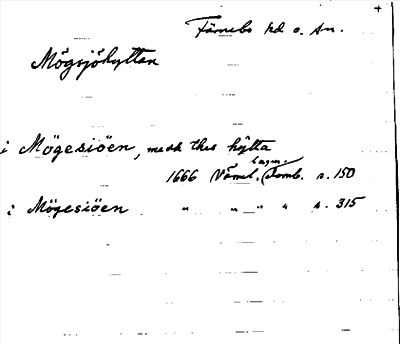 +
Färnebo hd o. sn.
Mögsjöhyttan
i Mögesiöen, medh thes hÿtta
lagm.
1666 Värml. Tomb. s. 150
i Mögesiöen " " " " s. 315